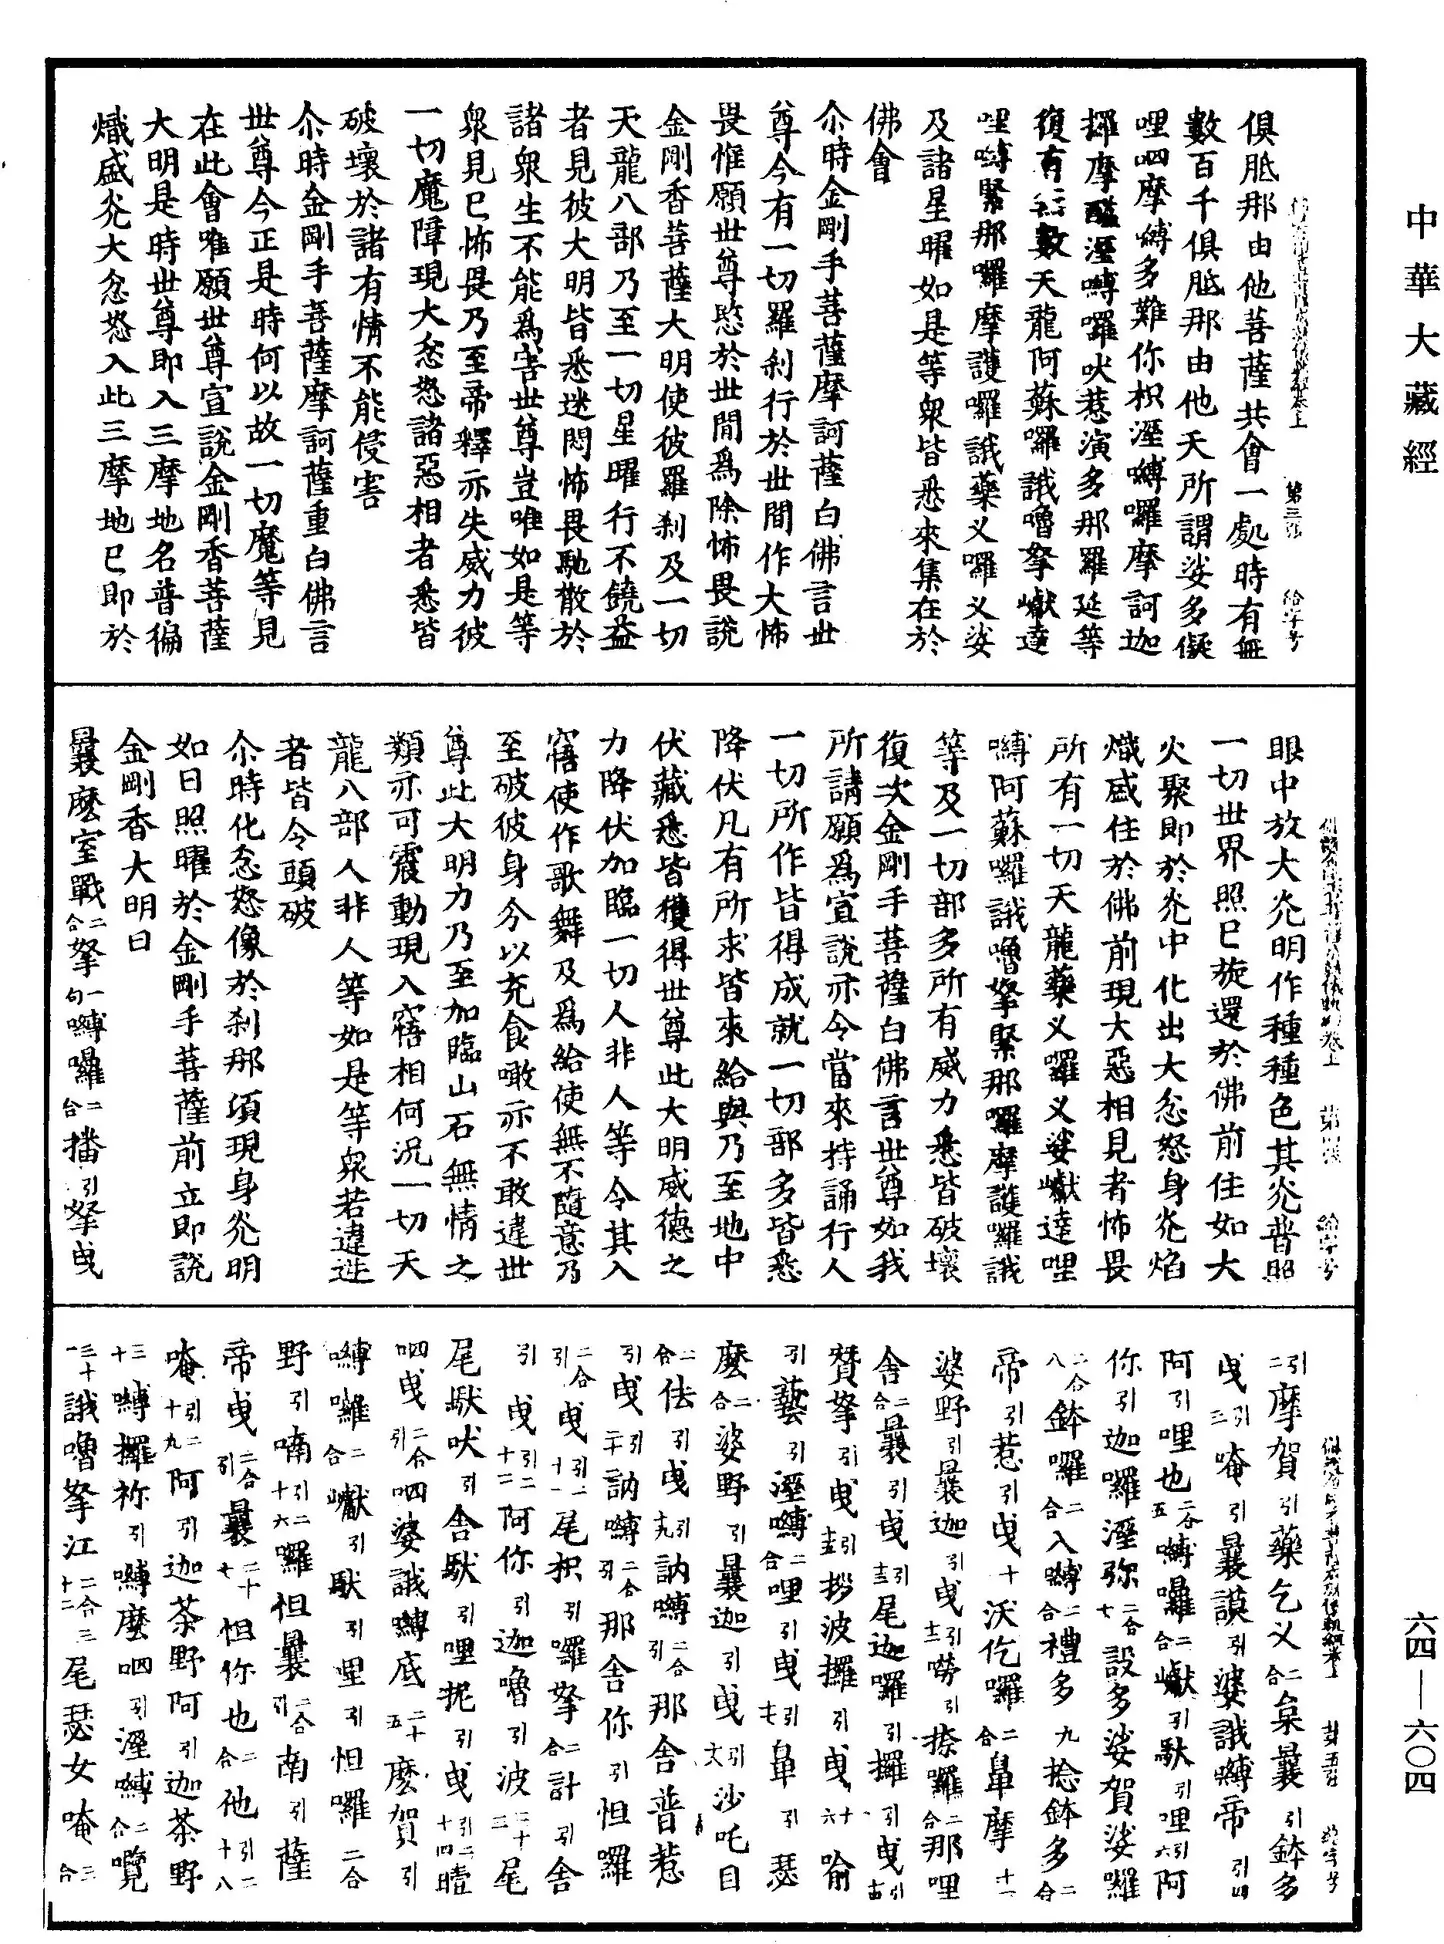 中華大藏經
俱胝那由他菩薩共會一處時有無
數百千俱胝那由他天所謂娑多儗
哩呬摩嚩多難你枳溼嚩囉摩訶迦
攞摩醯溼嚩囉吠惹演多那羅延等
復有無數天龍阿蘇囉誐嚕拏巘達
哩嚩緊那囉摩護囉誐藥叉囉叉娑
及諸星曜如是等衆皆悉來集在於
佛會
尒時金剛手菩薩摩訶薩白佛言世
尊今有一切羅刹行於世間作大怖
畏惟願世尊愍於世間爲除怖畏說
金剛香菩薩大明使彼羅刹及一切
天龍八部乃至一切星曜行不饒益
者見彼大明皆悉迷悶怖畏馳散於
諸衆生不能爲害世尊豈唯如是等
衆見已怖畏乃至帝釋亦失威力彼
一切魔障現大忿怒諸惡相者悉皆
破壞於諸有情不能侵害
尒時金剛手菩薩摩訶薩重白佛言
世尊今正是時何以故一切魔等見
在此會唯願世尊宣說金剛香菩薩
大明是時世尊即入三摩地名普徧
熾盛光大忿怒入此三摩地已即於
第三張 給字号
眼中放大光明作種種色其光普照
一切世界照已旋還於佛前住如大
火聚即於光中化出大忿怒身光焰
熾盛住於佛前現大惡相見者怖畏
所有一切天龍藥叉囉叉娑巘達哩
嚩阿蘇囉誐嚕拏緊那囉摩護囉誐
等及一切部多所有威力悉皆破壞
復次金剛手菩薩白佛言世尊如我
所請願爲宣說亦令當來持誦行人
一切所作皆得成就一切部多皆悉
降伏凡有所求皆來給與乃至地中
伏藏悉皆獲得世尊此大明威德之
力降伏加臨一切人非人等令其入
寤使作歌舞及爲給使無不隨意乃
至破彼身分以充食噉亦不敢違世
尊此大明力乃至加臨山石無情之
類亦可震動現入寤相何況一切天
龍八部人非人等如是等衆若違逆
者皆令頭破
尒時化忿怒像於刹那頃現身光明
如日照曜於金剛手菩薩前立即說
金剛香大明曰
曩麽室戰二合拏一句嚩囉二合播引拏曳
給字号
引二摩賀引藥乞叉二合枲曩引鉢多
曳引三唵引曩謨引婆誐嚩帝引四
阿引哩也二合五嚩囉二合巘引馱引哩引六阿
你引迦囉溼弥二合七設多娑賀娑囉
二合八鉢囉二合入嚩二合禮多九捻鉢多二合
帝引惹引曳十沃仡囉二合鼻摩十一
婆野引曩迦引曳引十二嘮引捺囉二合那哩
舍二合曩引曳引十三尾迦囉引攞引曳引十四
賛拏引曳引十五拶波攞引曳十六喻
引藝引溼嚩二合哩引曳引十七鼻引瑟
麽二合婆野引曩迦引曳引十八沙吒目
二合佉引曳引十九訥嚩二合引那舍普惹
引曳二十引訥嚩二合引那舍你引怛囉
二合引曳二十一引尾枳引囉拏二合計引舍
引曳二十二引阿你引迦嚕引波二十三尾
尾馱吠引舍馱引哩抳引曳二十四引噎
呬曳二合引呬婆誐嚩底二十五麽賀引
嚩囉二合巘引馱引哩引怛囉二合
野引喃二十六引囉怛曩二合引南引薩
帝曳二合引曩二十七怛你也二合他二十八引
唵二十九引阿引迦茶野阿引迦茶野
三十嚩攞祢引嚩麽呬引溼嚩二合覽
三十一誐嚕拏江三十二二合尾瑟女唵二合三
第五張 給字号
六四—六〇四